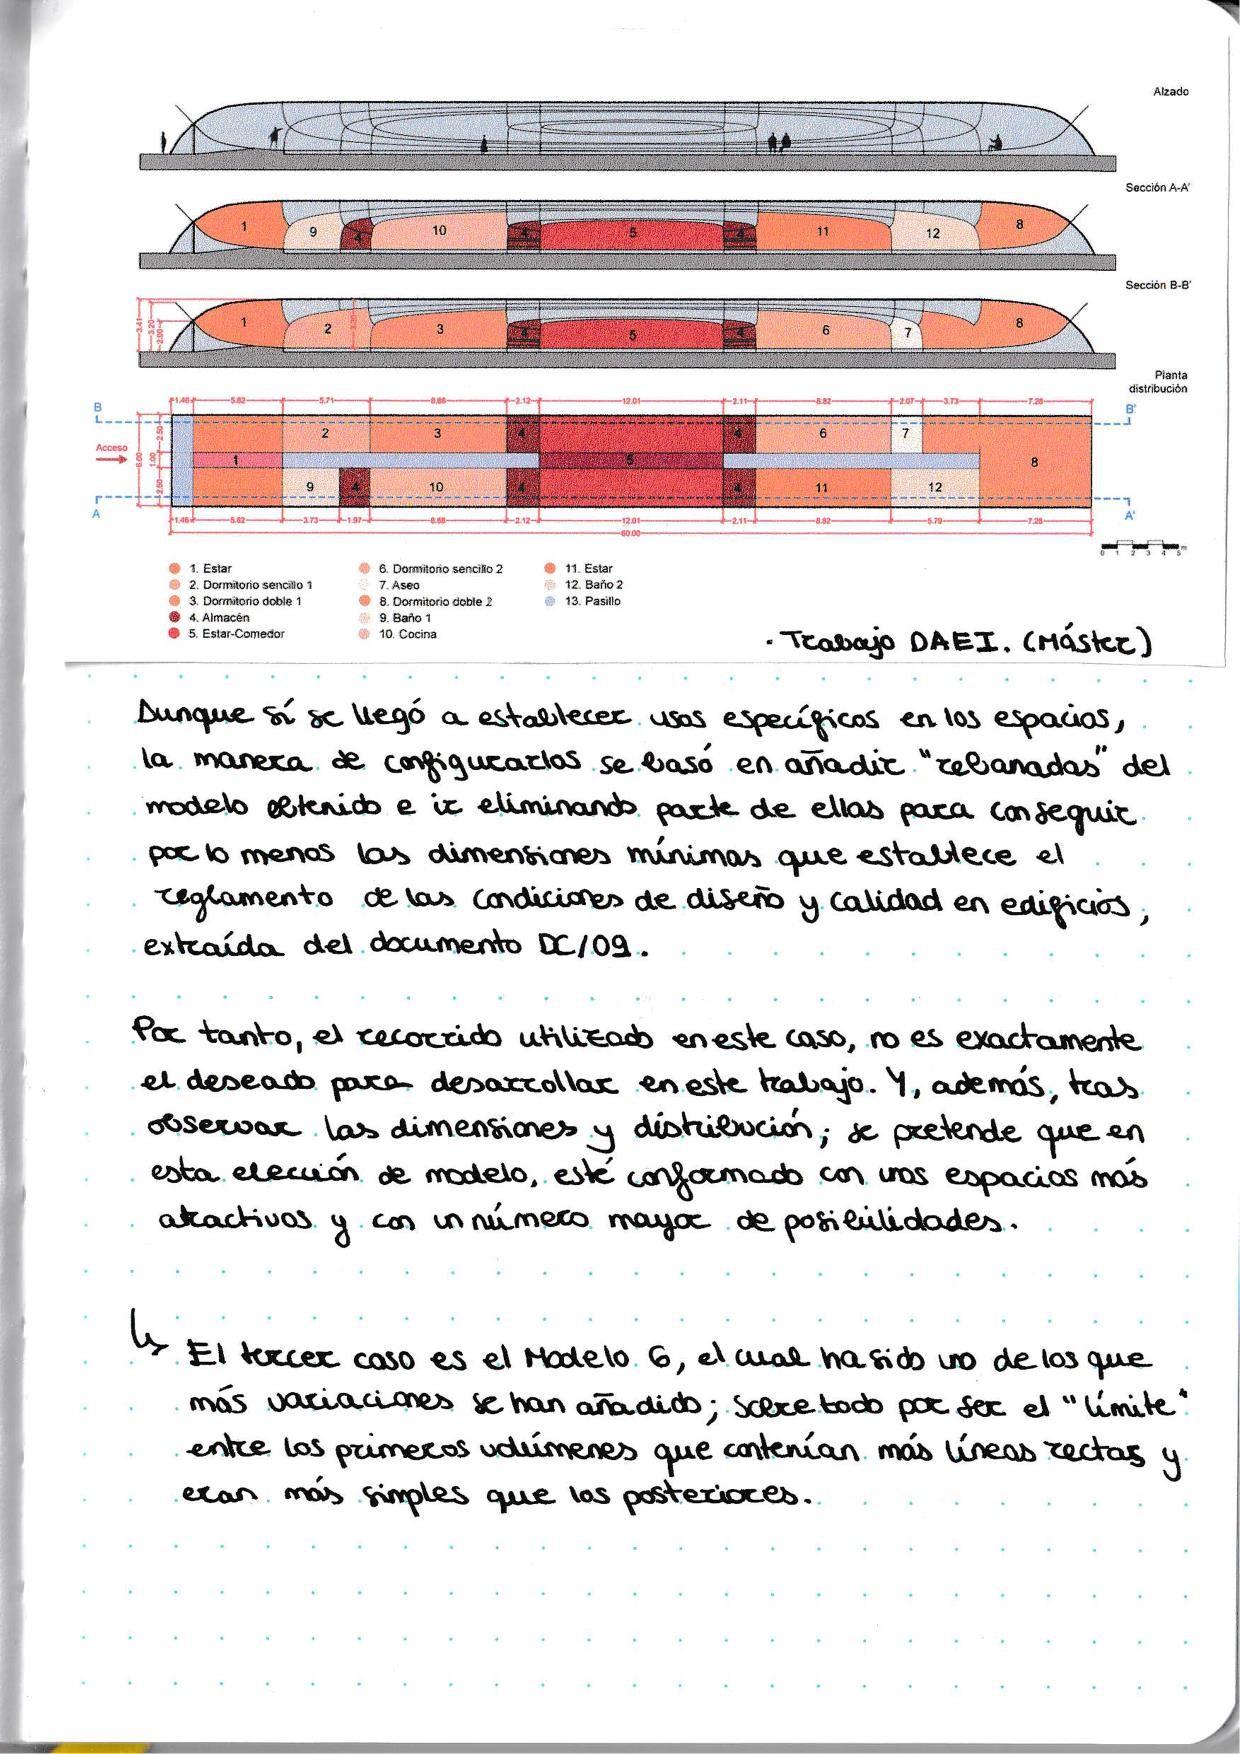 Alzado
Sección A-A'
1 9 4 10 4 5 4 11 12 8
Sección B-B'
3.41 3.20 2.00
1 2 3 4 5 4 6 7 8
Planta
distribución
1.46 5.82 5.71 8.68 2.12 12.01 2.11 8.82 2.07 3.73 7.28
B B'
2 3 4 4 6 7
Acceso
6.00 2.50 1.00 2.50
1 5 8
9 4 10 4 4 11 12
A A'
1.46 5.82 3.73 1.97 8.68 2.12 12.01 2.11 8.82 5.79 7.28
60.00
0 1 2 3 4 5 m
1. Estar
2. Dormitorio sencillo 1
3. Dormitorio doble 1
4. Almacén
5. Estar-Comedor
6. Dormitorio sencillo 2
7. Aseo
8. Dormitorio doble 2
9. Baño 1
10. Cocina
11. Estar
12. Baño 2
13. Pasillo
· Trabajo DAEI. (Máster)
Aunque sí se llegó a establecer usos específicos en los espacios,
la manera de configurarlos se basó en añadir "rebanadas" del
modelo obtenido e ir eliminando parte de ellas para conseguir
por lo menos las dimensiones mínimas que establece el
reglamento de las condiciones de diseño y calidad en edificios,
extraída del documento DC/09.
Por tanto, el recorrido utilizado en este caso, no es exactamente
el deseado para desarrollar en este trabajo. Y, además, tras
observar las dimensiones y distribución; se pretende que en
esta elección de modelo, esté conformado con unos espacios más
atractivos y con un número mayor de posibilidades.
↳ El tercer caso es el Modelo 6, el cual ha sido uno de los que
más variaciones se han añadido; sobre todo por ser el "límite"
entre los primeros volúmenes que contenían más líneas rectas y
eran más simples que los posteriores.